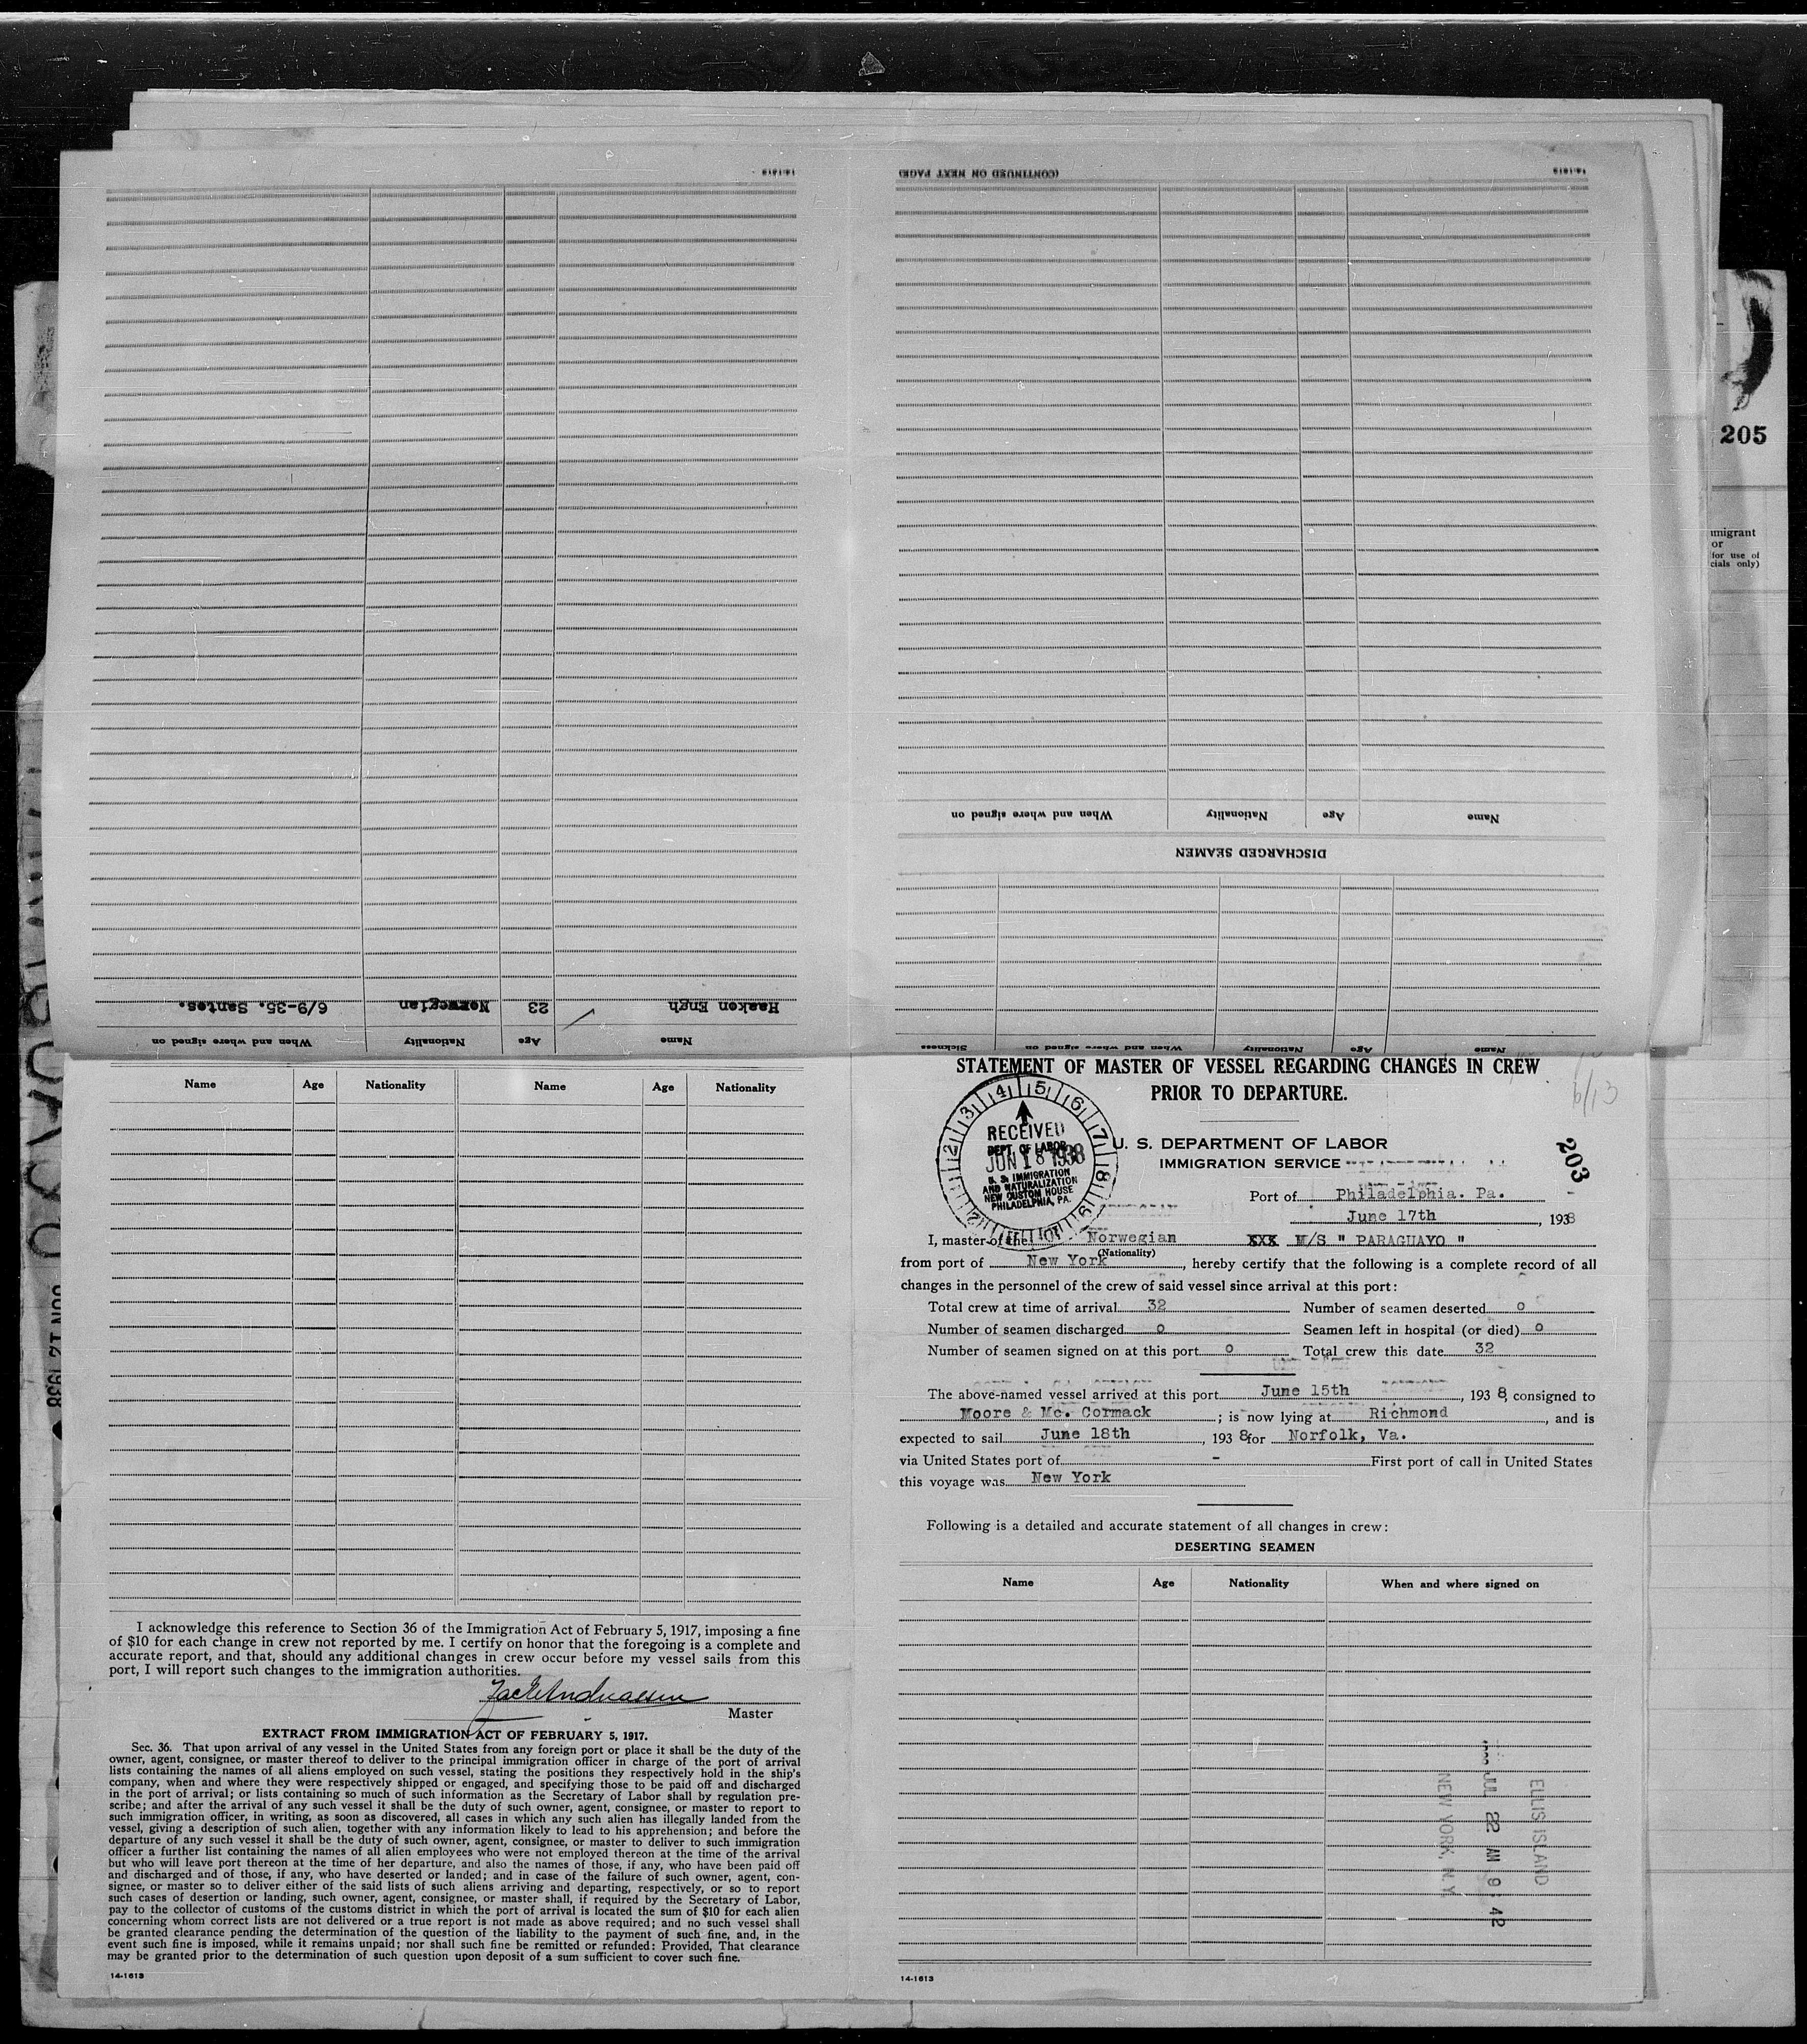 14-1613
(CONTINUED ON NEXT PAGE)
14-1613
205
mmigrant
or
for use of
cials only)
Name Nationality Age When and where signed on
DISCHARGED SEAMEN
Name Age Nationality When and where signed on Sickness
Haaken Engh 23 Norwegian 6/9-35. Santos.
Name Age Nationality When and where signed on
Name Age Nationality Name Age Nationality
I acknowledge this reference to Section 36 of the Immigration Act of February 5, 1917, imposing a fine
of $10 for each change in crew not reported by me. I certify on honor that the foregoing is a complete and
accurate report, and that, should any additional changes in crew occur before my vessel sails from this
port, I will report such changes to the immigration authorities.
Master
EXTRACT FROM IMMIGRATION ACT OF FEBRUARY 5, 1917.
Sec. 36. That upon arrival of any vessel in the United States from any foreign port or place it shall be the duty of the
owner, agent, consignee, or master thereof to deliver to the principal immigration officer in charge of the port of arrival
lists containing the names of all aliens employed on such vessel, stating the positions they respectively hold in the ship's
company, when and where they were respectively shipped or engaged, and specifying those to be paid off and discharged
in the port of arrival; or lists containing so much of such information as the Secretary of Labor shall by regulation pre-
scribe; and after the arrival of any such vessel it shall be the duty of such owner, agent, consignee, or master to report to
such immigration officer, in writing, as soon as discovered, all cases in which any such alien has illegally landed from the
vessel, giving a description of such alien, together with any information likely to lead to his apprehension; and before the
departure of any such vessel it shall be the duty of such owner, agent, consignee, or master to deliver to such immigration
officer a further list containing the names of all alien employees who were not employed thereon at the time of the arrival
but who will leave port thereon at the time of her departure, and also the names of those, if any, who have been paid off
and discharged and of those, if any, who have deserted or landed; and in case of the failure of such owner, agent, con-
signee, or master so to deliver either of the said lists of such aliens arriving and departing, respectively, or so to report
such cases of desertion or landing, such owner, agent, consignee, or master shall, if required by the Secretary of Labor,
pay to the collector of customs of the customs district in which the port of arrival is located the sum of $10 for each alien
concerning whom correct lists are not delivered or a true report is not made as above required; and no such vessel shall
be granted clearance pending the determination of the question of the liability to the payment of such fine, and, in the
event such fine is imposed, while it remains unpaid; nor shall such fine be remitted or refunded: Provided, That clearance
may be granted prior to the determination of such question upon deposit of a sum sufficient to cover such fine.
14-1613
STATEMENT OF MASTER OF VESSEL REGARDING CHANGES IN CREW
PRIOR TO DEPARTURE.
6/13
203
RECEIVED
DEPT. OF LABOR
JUN 18 1938
U. S. IMMIGRATION
AND NATURALIZATION
NEW CUSTOM HOUSE
PHILADELPHIA, PA.
U. S. DEPARTMENT OF LABOR
IMMIGRATION SERVICE
Port of Philadelphia. Pa.
June 17th, 1938
I, master of the Norwegian XXX M/S " PARAGUAYO "
(Nationality)
from port of New York, hereby certify that the following is a complete record of all
changes in the personnel of the crew of said vessel since arrival at this port:
Total crew at time of arrival 32 Number of seamen deserted o
Number of seamen discharged o Seamen left in hospital (or died) o
Number of seamen signed on at this port o Total crew this date 32
The above-named vessel arrived at this port June 15th, 1938, consigned to
Moore & Mc. Cormack; is now lying at Richmond, and is
expected to sail June 18th, 1938 for Norfolk, Va.
via United States port of - First port of call in United States
this voyage was New York
Following is a detailed and accurate statement of all changes in crew:
DESERTING SEAMEN
Name Age Nationality When and where signed on
ELLIS ISLAND
JUL 22 AM 9:42
NEW YORK, N.Y.
14-1613